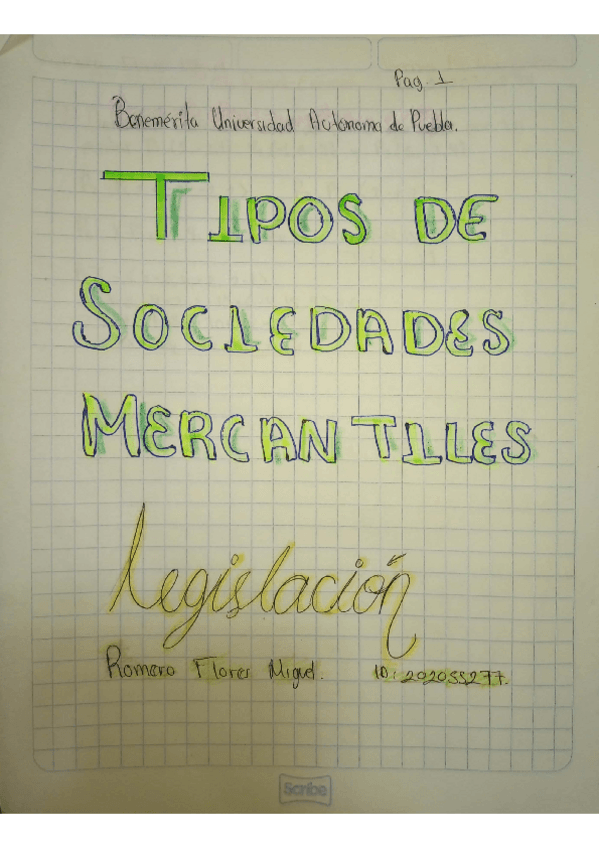 Pag. 1
Benemérita Universidad Autonoma de Puebla.
TIPOS DE
SOCIEDADES
MERCANTILES
Legislación
Romero Flores Miguel. ID: 202055277.
Scribe